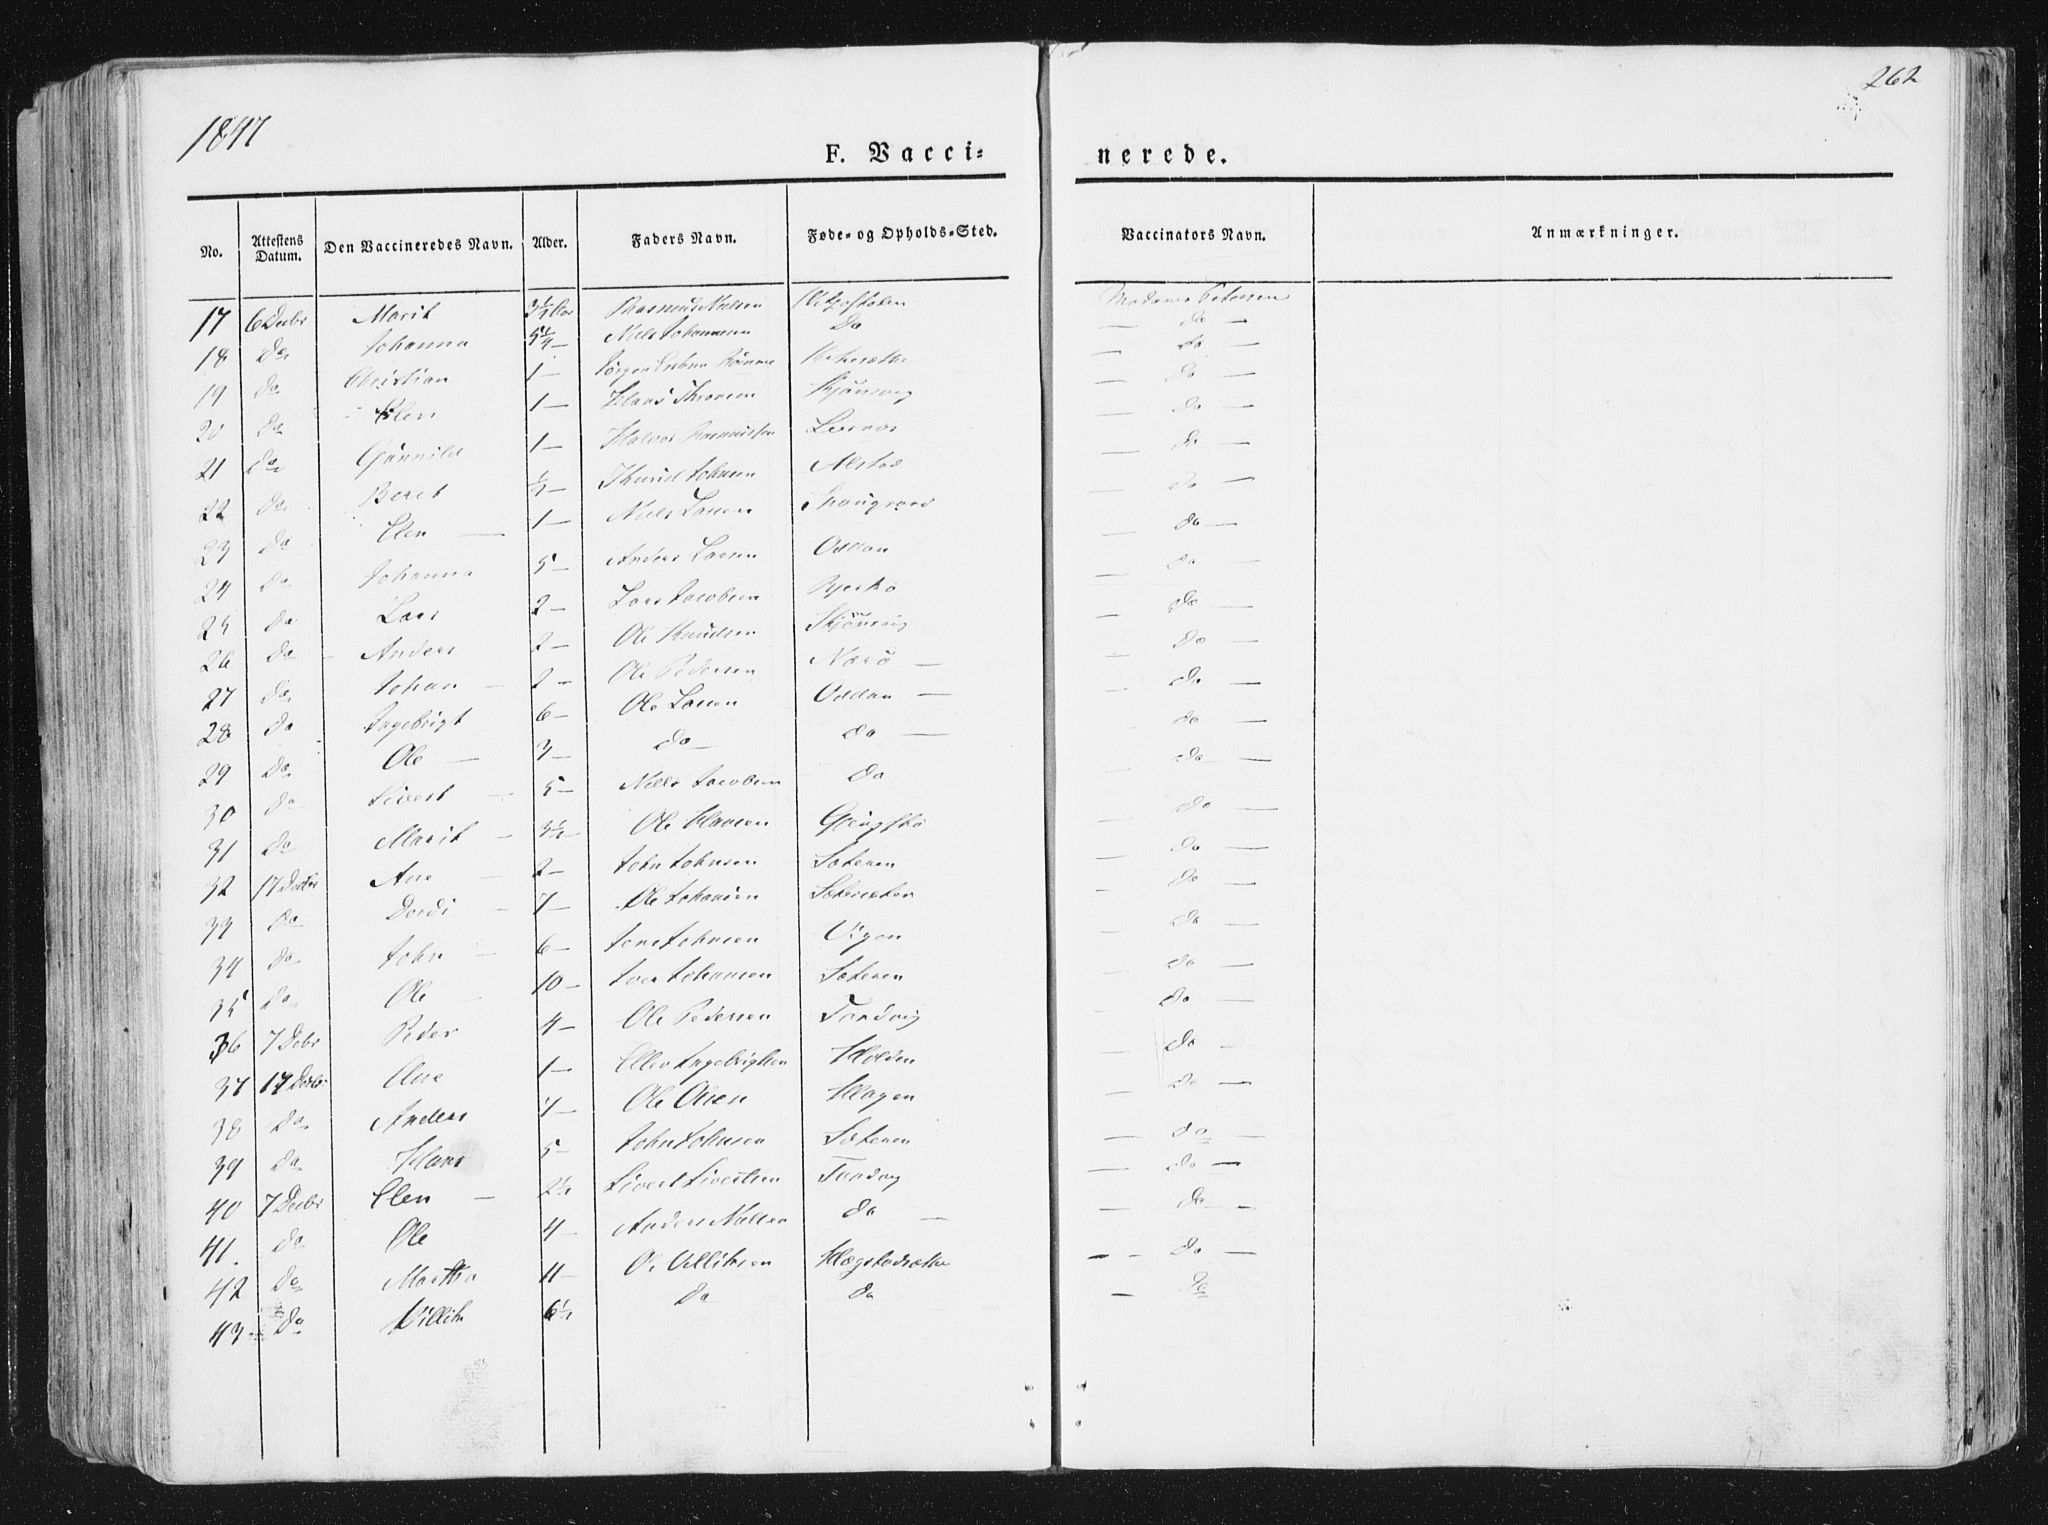 262
1847
F. Vacci= nerede.
No. Attestens Datum. Den Vaccineredes Navn. Alder. Faders Navn. Føde- og Opholds-Sted. Vaccinators Navn. Anmærkninger.
17 6 Decbr Marit Rasmus Nielsen Madame Petersen
18 Do Johanna Niels Johannesen Do — Do —
19 Do Christian 1 — Jørgen — Do —
20 Do Elen 1 — Hans Skjönsvig — Do —
21 Do Gunnild 1 — Halvor Rasmussen Leernæs — Do —
22 Do Berit ½ — Knud Johnsen Alstad — Do —
23 Do Elen — 1 — Niels Larsen — Do —
24 Do Johanna 5 — Anders Larsen Oddan — Do —
25 Do Lars 2 — Lars Jacobsen — Do —
26 Do Anders 2 — Ole Knudsen Skjönsvig — Do —
27 Do Johan — 2 — Ole Pedersen Nærö — — Do —
28 Do Ingebrigt 6 — Ole Larsen Oddan — — Do —
29 Do Ole — 3 — Do — Do — — Do —
30 Do Sivert — 5 — Niels Jacobsen Do — Do —
31 Do Marit — 3½ — Ole Hansen — Do —
32 17 Decbr Ane — 2 — John Johnsen Sæteren — Do —
33 Do Dordi — 7 — Ole Johansen Sætersæter — Do —
34 Do John — 6 — Jens Johnsen Vigen — Do —
35 Do Ole — 10 — Iver Johansen Sæteren — Do —
36 7 Debr Peder 4 — Ole Pedersen Tandvig — Do —
37 17 Decbr Ane 1 — Ellev Ingebrigtsen Holden — Do —
38 Do Anders 7 — Ole Olsen Hagen — Do —
39 Do Hans 5 — John Johnsen Sæteren — Do —
40 7 Decbr Elen — 2½ Sivert Sivertsen Tandvig — Do —
41. Do Ole 4 — Anders Nielsen Do — — Do —
42 Do Martha 11 — Ole Villiksen Hægstadsæther — — Do —
43 Do Villik 6½ Do Do — Do